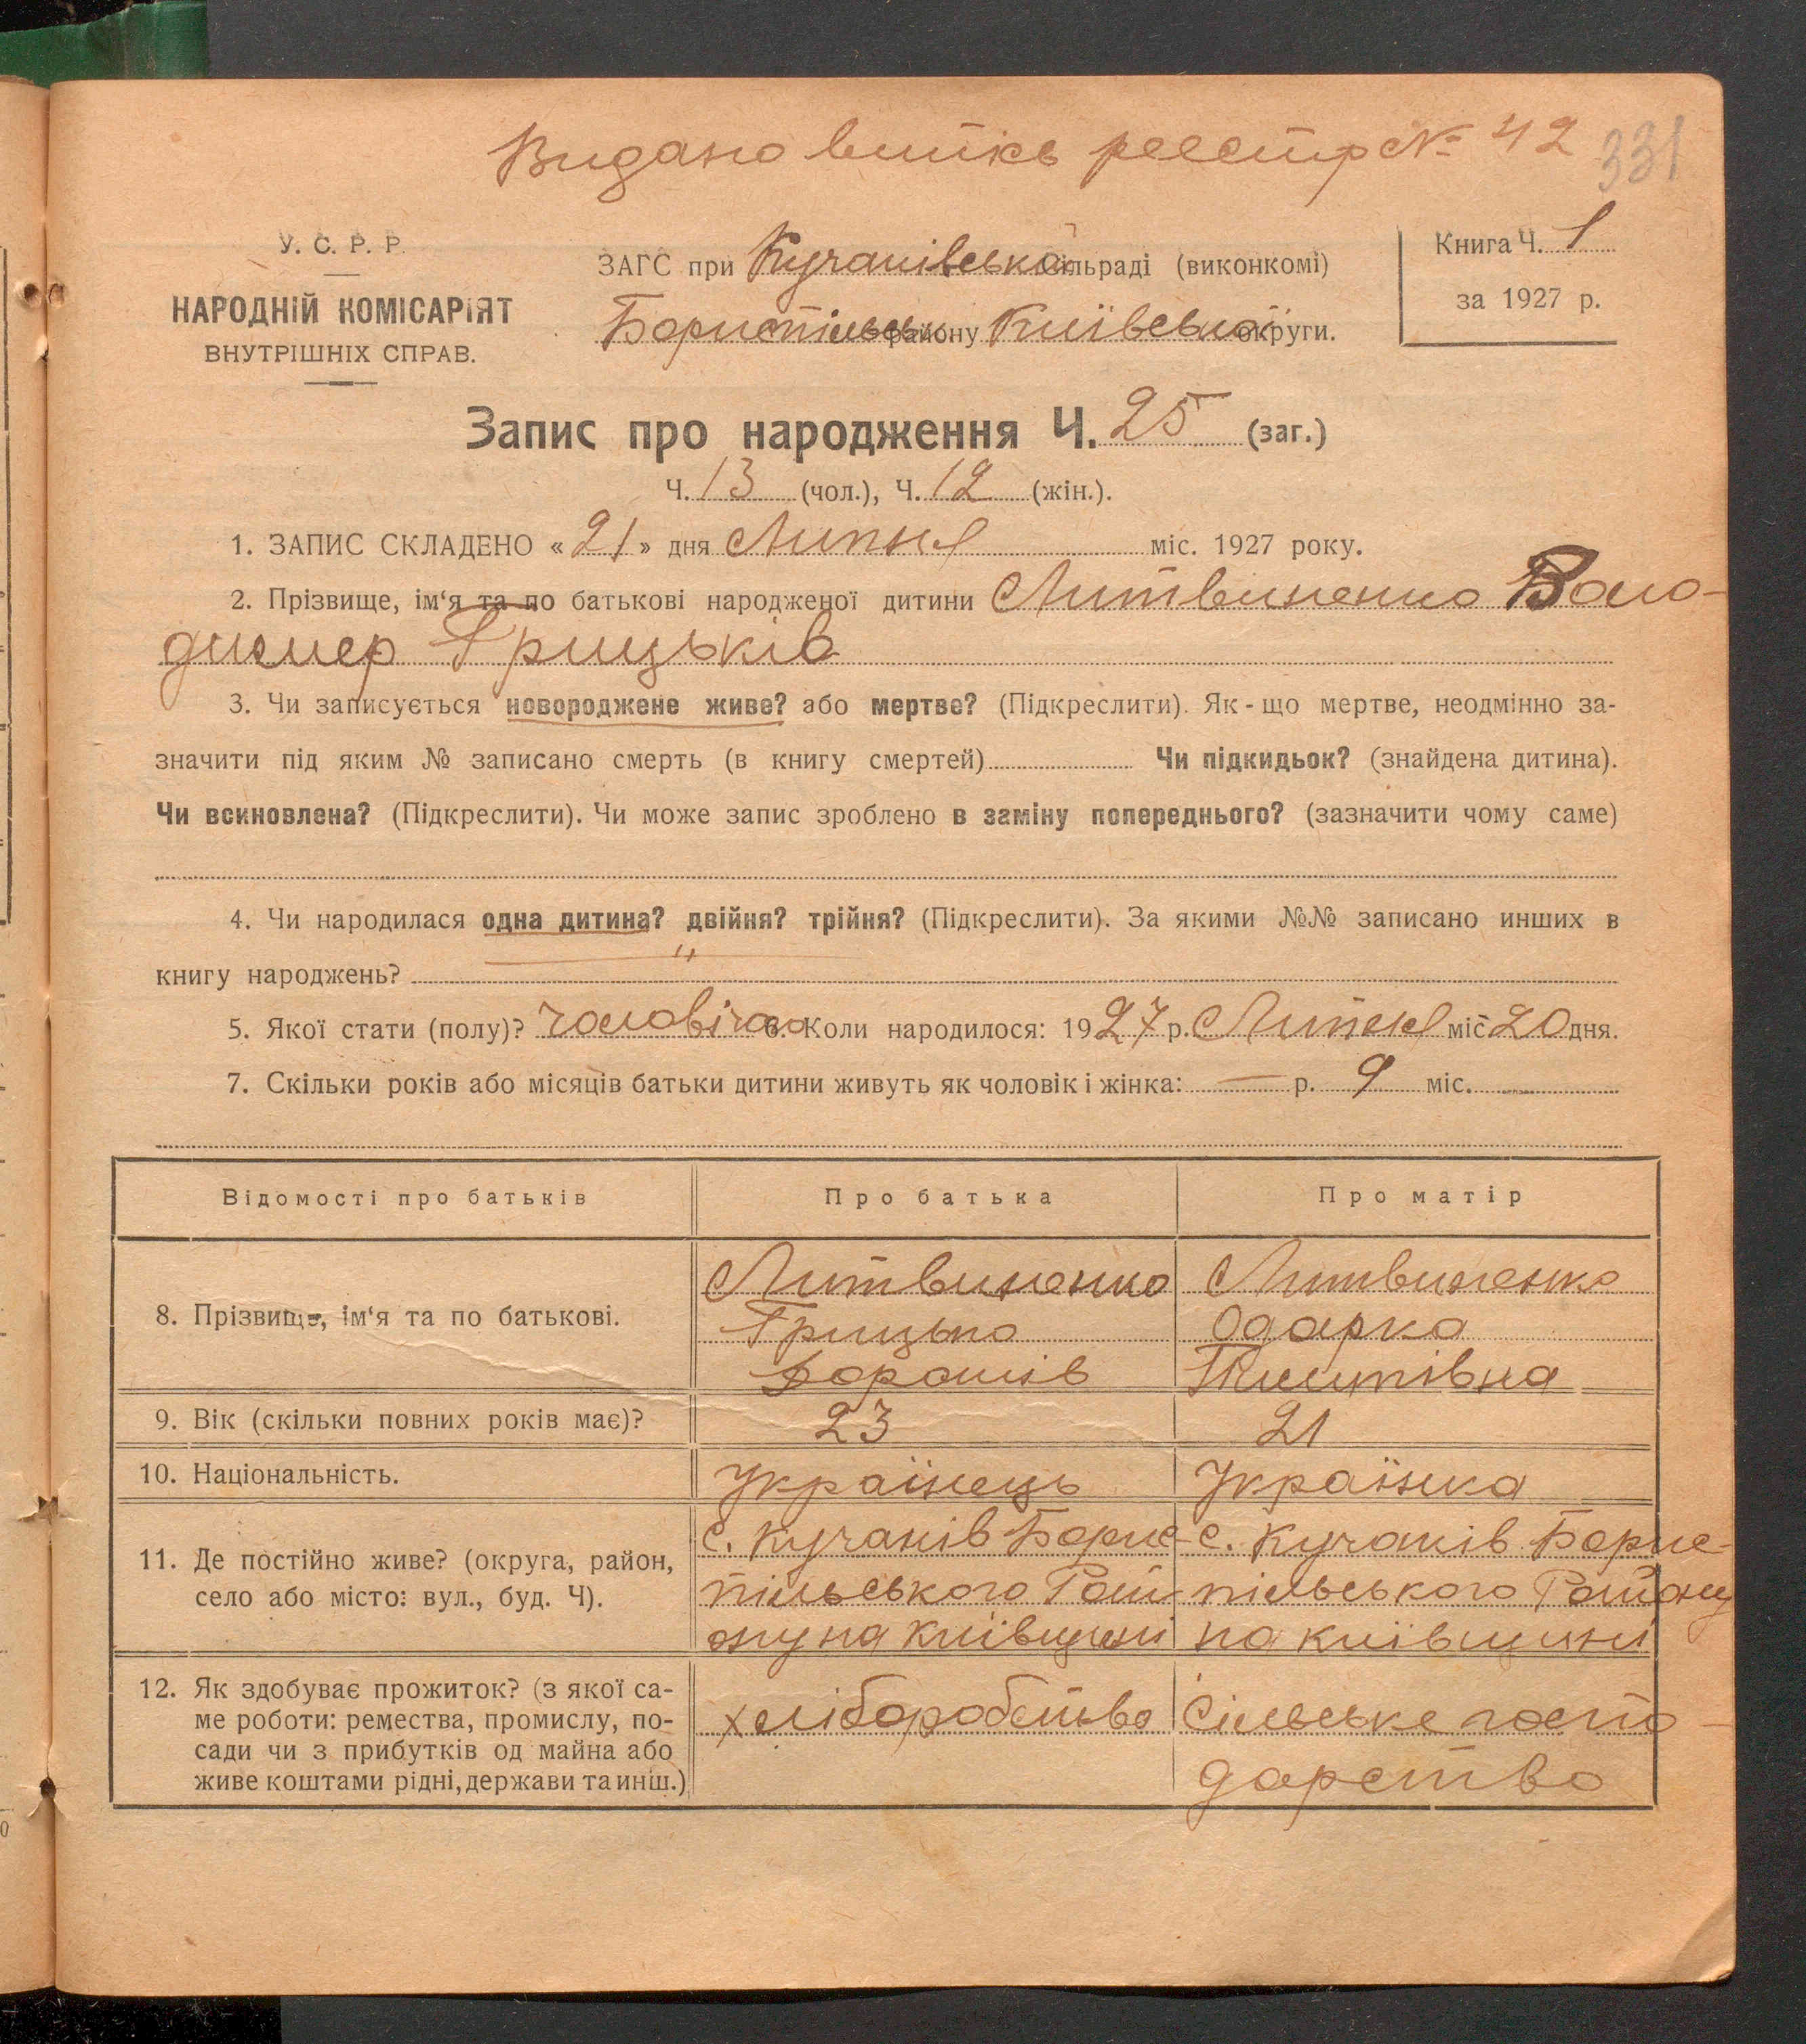 Видано витяг реєстр № 42
331
У. С. Р. Р.
НАРОДНІЙ КОМІСАРІЯТ
ВНУТРІШНІХ СПРАВ.
ЗАГС при Кучаківській сільраді (виконкомі)
Бориспільськ. району Київської округи.
Книга Ч. 1
за 1927 р.
Запис про народження Ч. 25 (заг.)
Ч. 13 (чол.), Ч. 12 (жін.).
1. ЗАПИС СКЛАДЕНО «21» дня Липня міс. 1927 року.
2. Прізвище, ім‘я та по батькові народженої дитини Литвиненко Воло-
димер Грицьків
3. Чи записується новороджене живе? або мертве? (Підкреслити). Як-що мертве, неодмінно за-
значити під яким № записано смерть (в книгу смертей) Чи підкидьок? (знайдена дитина).
Чи всиновлена? (Підкреслити). Чи може запис зроблено в заміну попереднього? (зазначити чому саме)
4. Чи народилася одна дитина? двійня? трійня? (Підкреслити). За якими №№ записано инших в
книгу народжень? "
5. Якої стати (полу)? чоловічого 6. Коли народилося: 1927 р. Липня міс 20 дня.
7. Скільки років або місяців батьки дитини живуть як чоловік і жінка: — р. 9 міс.
Відомості про батьків Про батька Про матір
8. Прізвище, ім‘я та по батькові.
Литвиненко
Грицько
Литвиненко
Одарка
9. Вік (скільки повних років має)? 23 21
10. Національність. Українець Українка
11. Де постійно живе? (округа, район,
село або місто: вул., буд. Ч).
с. Кучаків Борис-
пільського Рай
ону на Київщині
с. Кучаків Борис-
пільського Району
на Київщині
12. Як здобуває прожиток? (з якої са-
ме роботи: ремества, промислу, по-
сади чи з прибутків од майна або
живе коштами рідні, держави та инш.)
хліборобство
Сільське госпо-
дарство